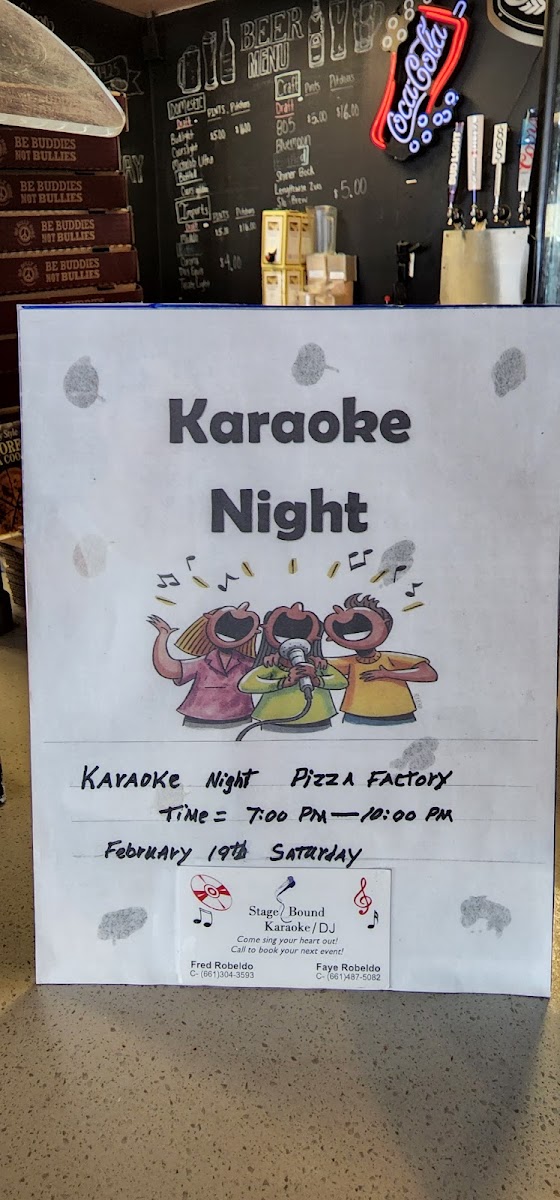 BEER
MENU
Domestic
Draft
PINTS Pitchers
Budlight
$5.00
Coorslight
Michelob Ultra
Bottled
Imports
PINTS Pitchers
Draft
$4.00
Craft
Pints Pitchers
Draft
805 $5.00 $16.00
Bluemoon
Shiner Bock
$5.00
Coca-Cola
BE BUDDIES
NOT BULLIES
BE BUDDIES
NOT BULLIES
BE BUDDIES
NOT BULLIES
BE BUDDIES
NOT BULLIES
Karaoke
Night
KARAOKE Night PIZZA FACTORY
TIME = 7:00 PM — 10:00 PM
FEBRUARY 19th SATURDAY
Stage Bound
Karaoke/DJ
Come sing your heart out!
Call to book your next event!
Fred Robeldo
C- (661)304-3593
Faye Robeldo
C- (661)487-5082